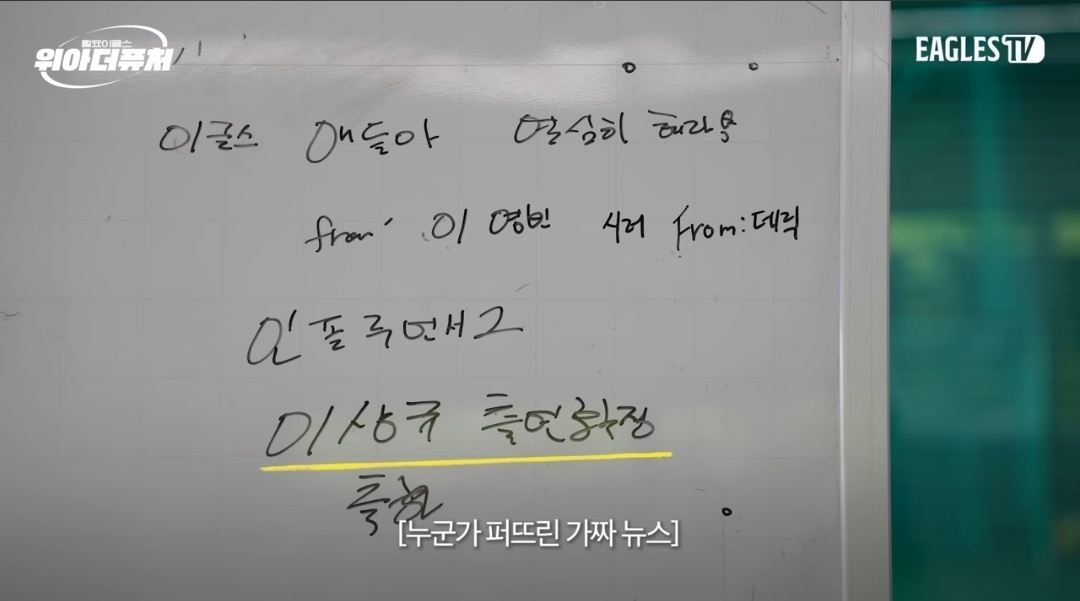 퓨처스이글스
위아더퓨처
EAGLES TV
이글스 애들아 열심히 해라
from 이영빈 시러 from:데릭
인플루언서
이상규 출연확정
[누군가 퍼뜨린 가짜 뉴스]